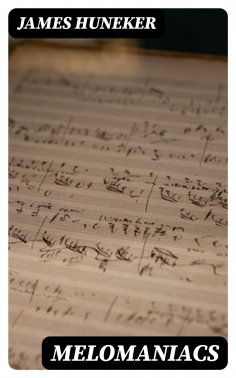 JAMES HUNEKER
MELOMANIACS